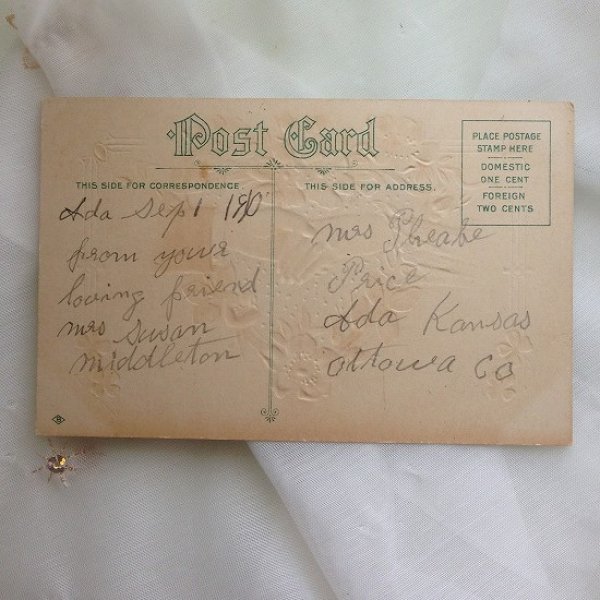 Post Card
THIS SIDE FOR CORRESPONDENCE
THIS SIDE FOR ADDRESS.
PLACE POSTAGE
STAMP HERE
DOMESTIC
ONE CENT
FOREIGN
TWO CENTS
Ada Sep 1
from your
loving friend
mrs Susan
middleton
mrs Pheabe
Price
Ada Kansas
Ottowa Co